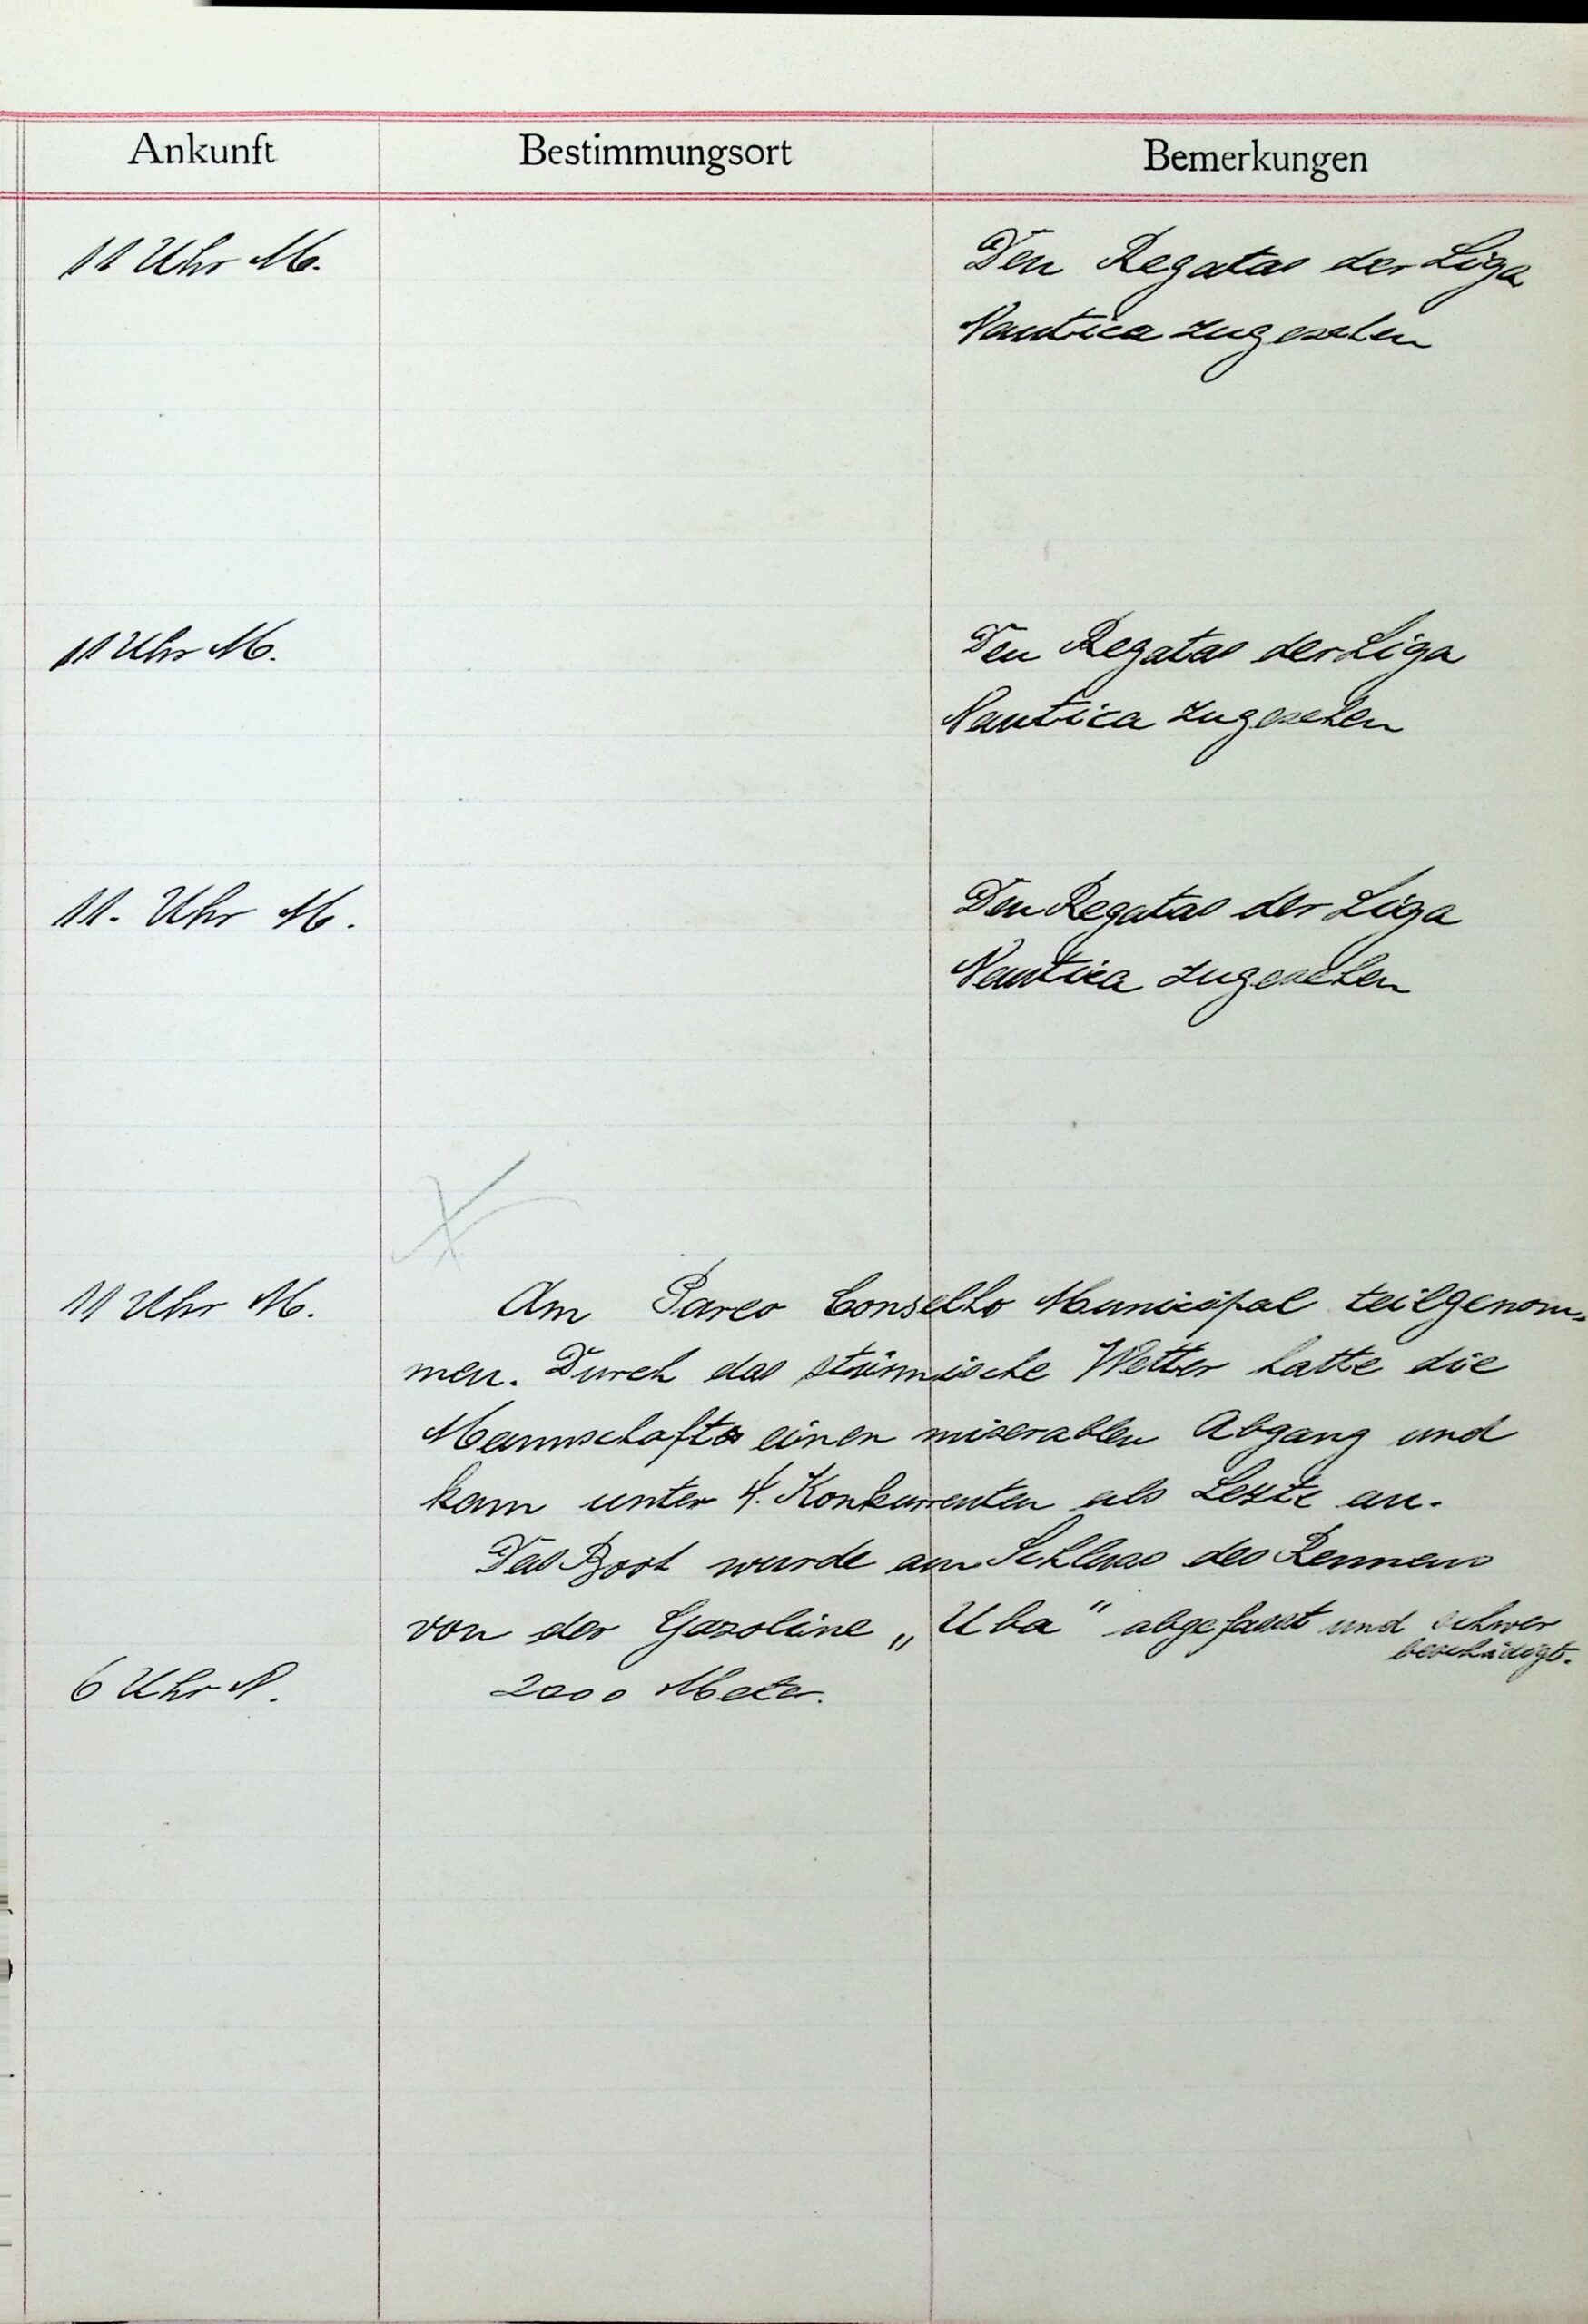 Ankunft Bestimmungsort Bemerkungen
11 Uhr M. Den Regatas der Liga
Nautica zugesehen
11 Uhr M. Den Regatas der Liga
Nautica zugesehen
11. Uhr M. Den Regatas der Liga
Nautica zugesehen
11 Uhr M. Am Pareo Conselho Municipal teilgenom-
men. Durch das stürmische Wetter hatte die
Mannschaft einen miserablen Abgang und
kam unter 4. Konkurrenten als Letzte an.
Das Boot wurde am Schluss des Rennens
von der Gasoline „Uba" abgefasst und schwer
beschädigt.
6 Uhr N. 2000 Meter.